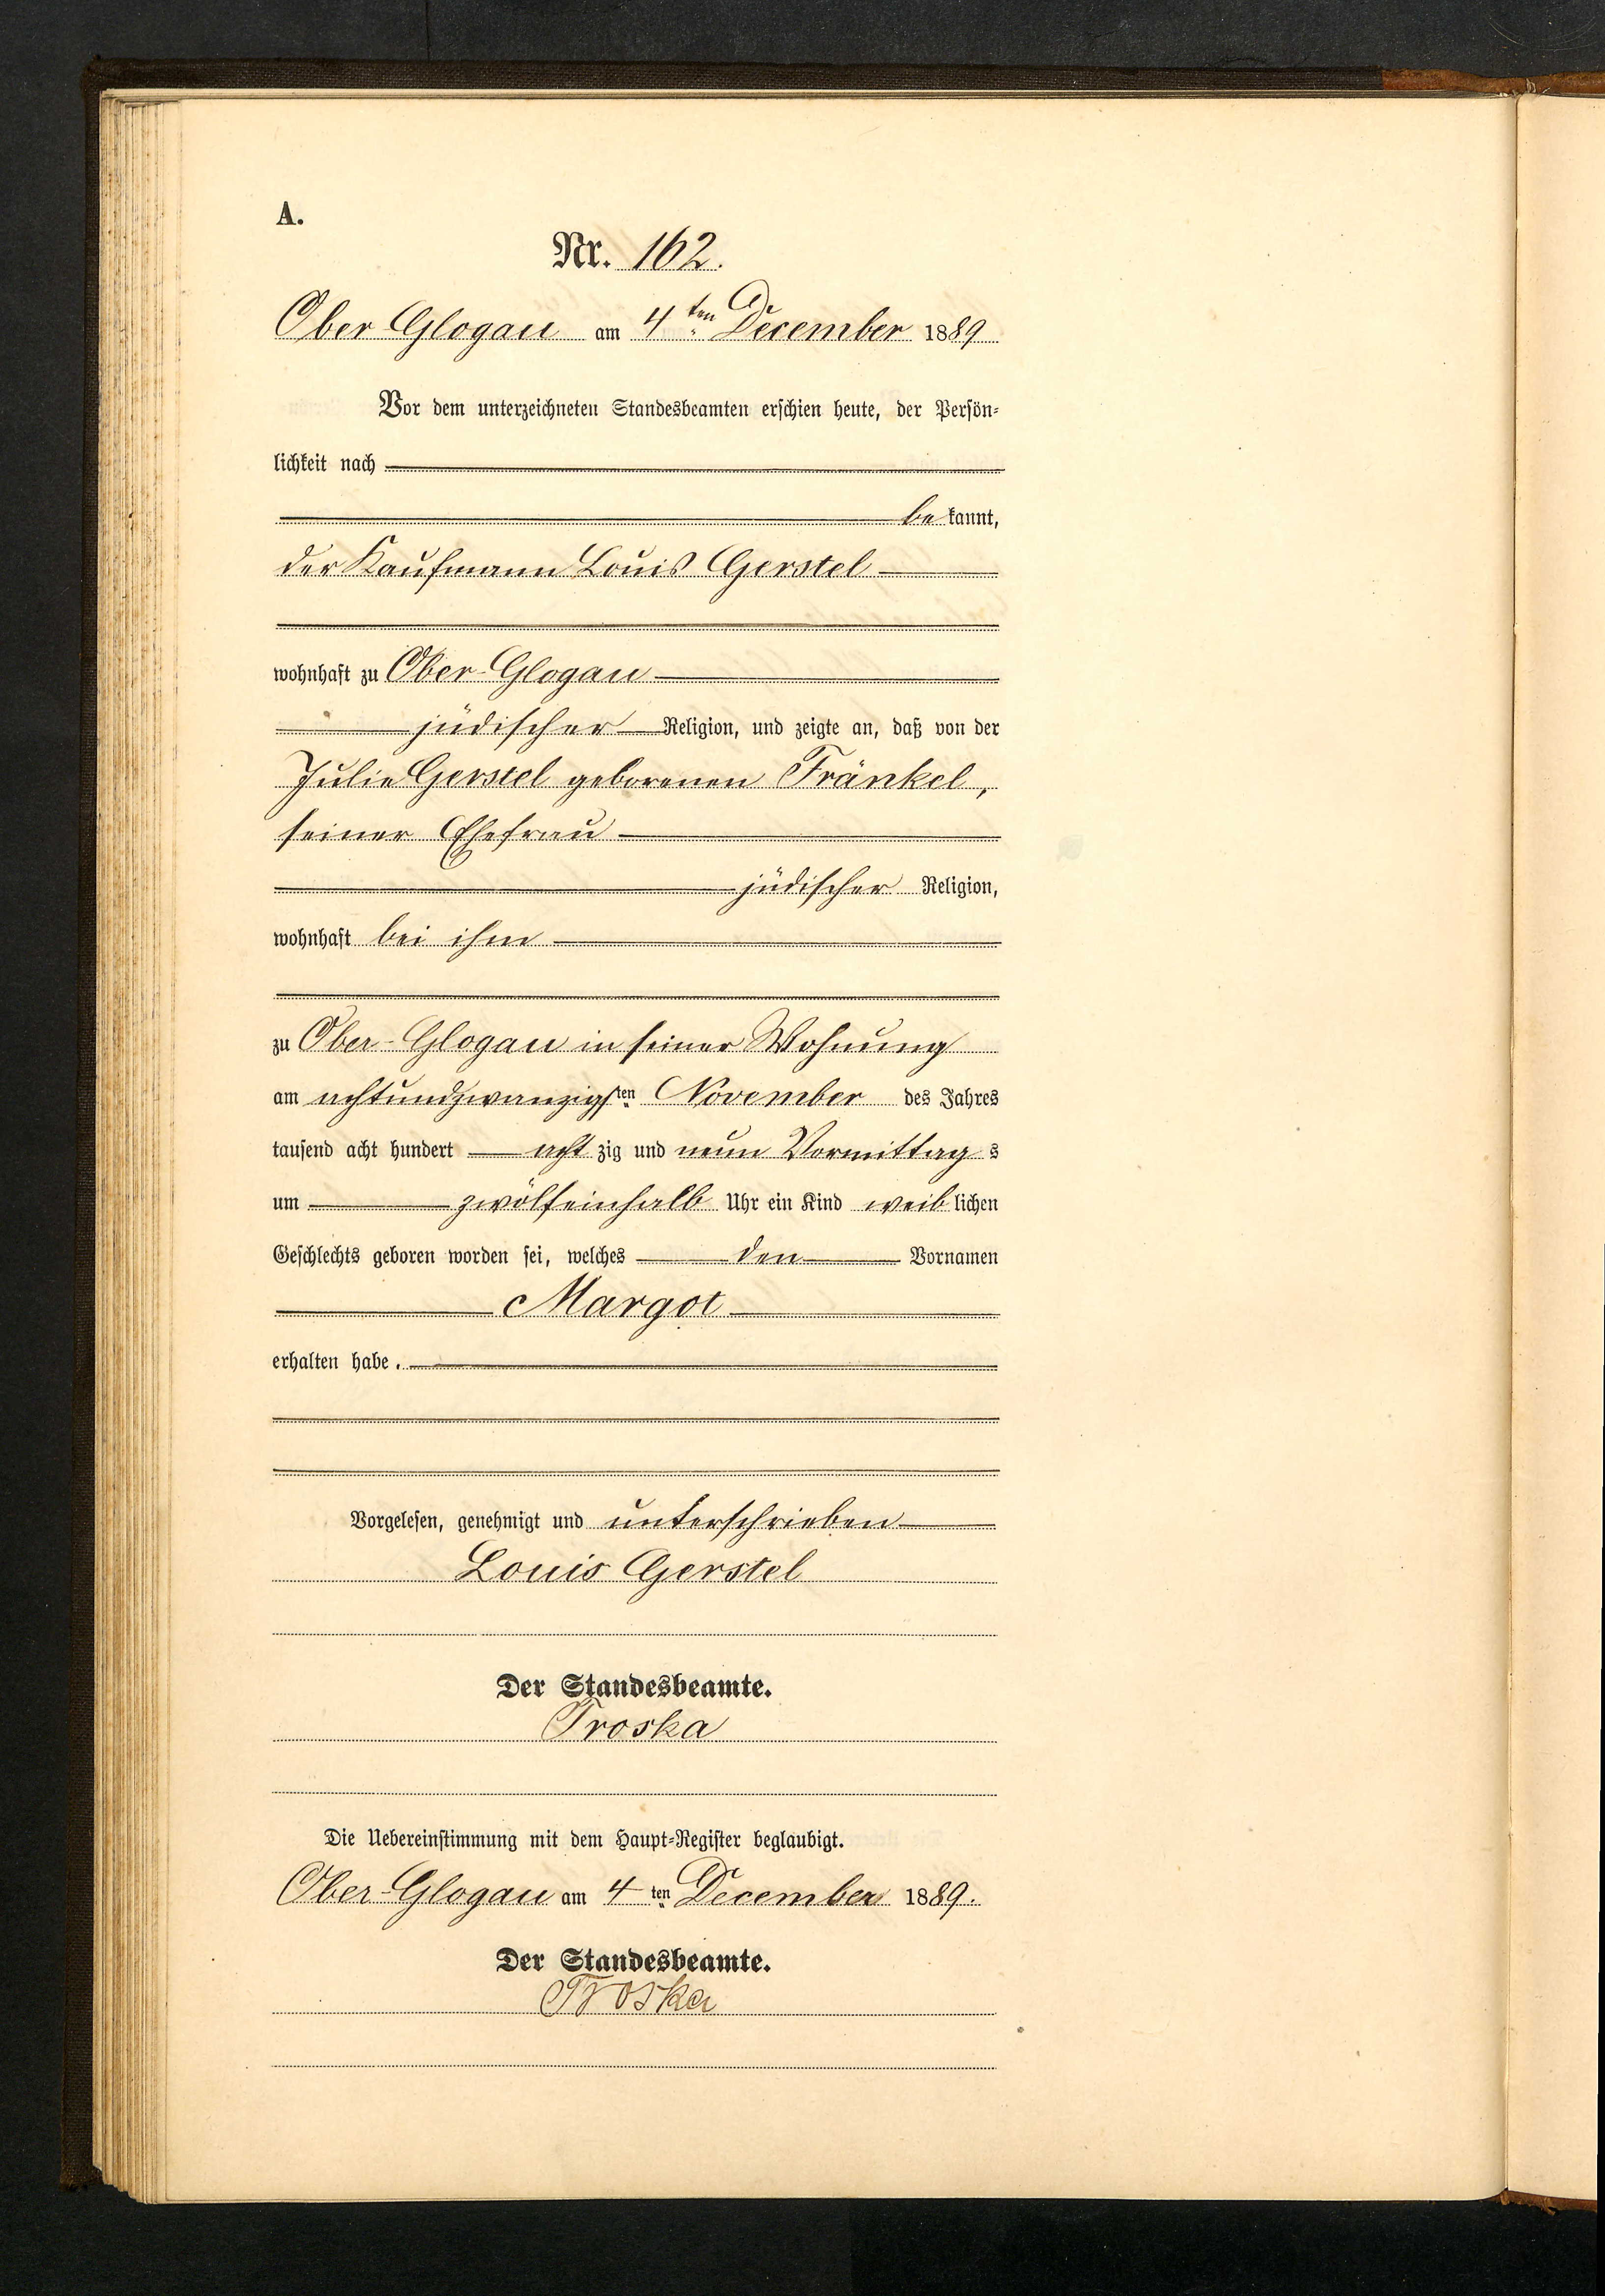 A.
Nr. 162.
Ober Glogau am 4ten December 1889
Vor dem unterzeichneten Standesbeamten erschien heute, der Persön-
lichkeit nach
bekannt,
der Kaufmann Louis Gerstel
wohnhaft zu Ober-Glogau
jüdischer Religion, und zeigte an, daß von der
Julie Gerstel geborenen Fränkel,
seiner Ehefrau
jüdischer Religion,
wohnhaft bei ihm
zu Ober-Glogau in seiner Wohnung
am achtundzwanzigsten November des Jahres
tausend acht hundert achtzig und neun Vormittags
um zwölfeinhalb Uhr ein Kind weiblichen
Geschlechts geboren worden sei, welches den Vornamen
Margot
erhalten habe.
Vorgelesen, genehmigt und unterschrieben
Louis Gerstel
Der Standesbeamte.
Troska
Die Uebereinstimmung mit dem Haupt-Register beglaubigt.
Ober-Glogau am 4ten December 1889.
Der Standesbeamte.
Troska